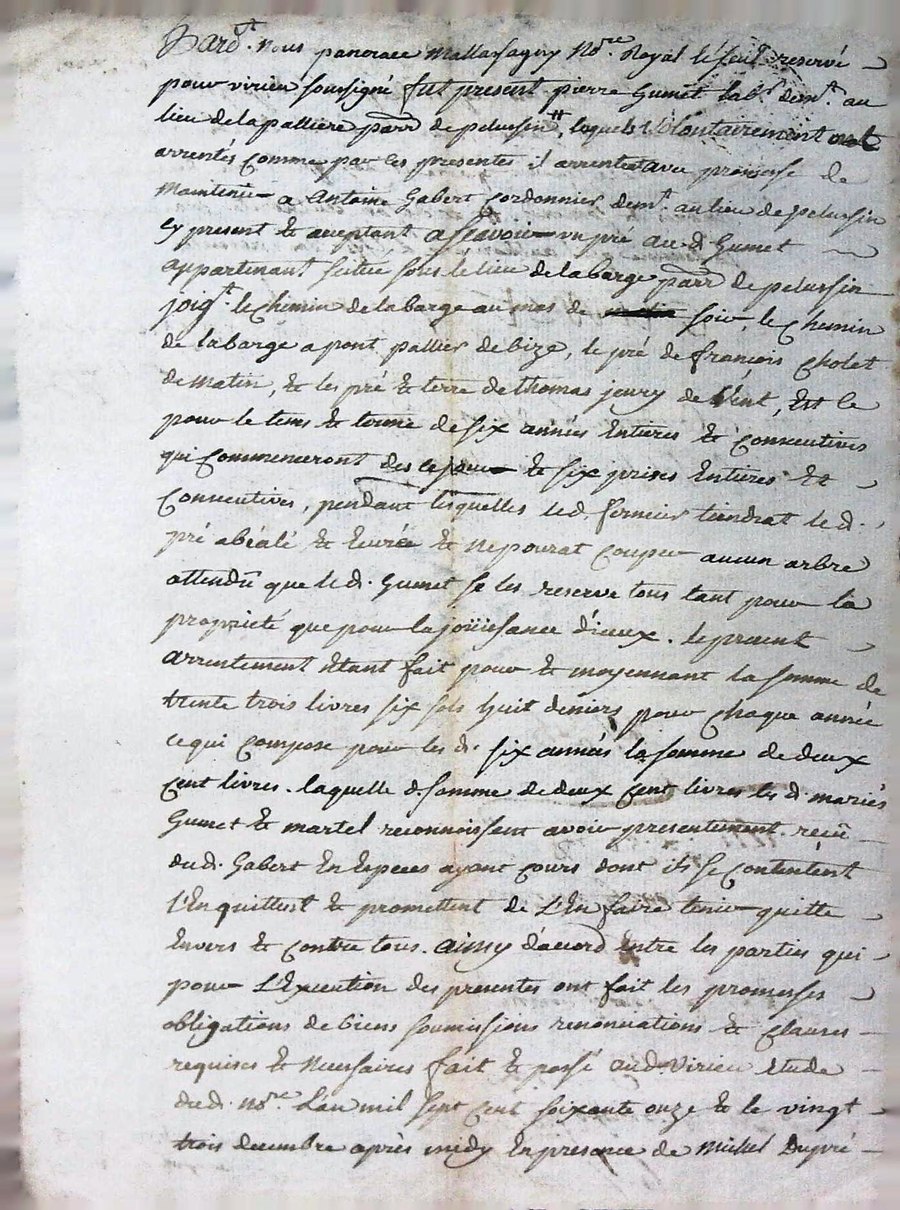 Pard.t Nous pancrace Mallassagny No.re Royal le seul reservé
pour virieu soussigné fut present pierre Gumet lab.r dem.t au
lieu de la palliere parr de pelussin # lequels volontairement ont
arrentés comme par les presentes il arrentent avec promesse de
Maintenir a Antoine Gabert cordonnier dem.t au lieu de pelussin
Cy present & aceptant assavoir un pré au d. Gumet
appartenant scitué sous le lieu de la barge parr de pelussin
joig.t le chemin de la barge au mas de soir, le chemin
de la barge a pont pallier de bize, le pré de françois Cholet
de matin, & les pré & terre de thomas jeury de Vent, Est ce
pour le tems & terme de six années Entieres & consecutives
qui commenceront des ce jour & six prises Entieres Et
Consecutives, pendant lesquelles led. fermier tiendrat le d.
pré abéalé & Curée & ne pourat couper aucun arbre
attendû que le d. Gumet se les reserve tous tant pour la
propriété que pour la joüissance d'iceux. le present
arrentement Etant fait pour & moyennant la somme de
trente trois livres six sols huit deniers pour chaque année
ce qui compose pour les d. six années la somme de deux
cent livres. laquelle d. somme de deux cent livres les d. mariés
Gumet & martel reconnoissent avoir presentement reçû
du d. Gabert En Especes ayant cours dont ils se contentent
l'En quittent & promettent de L'En faire tenir quitte
Envers & contre tous. ainsy d'acord Entre les parties qui
pour L'Execution des presentes ont fait les promesses
obligations de biens soumissions renonciations & clauses
requises & Necessaires fait & passé aud. Virieu Etude
du d. No.re L'an mil sept cent soixante onze & le vingt
trois decembre après midy En presence de Michel Dupré